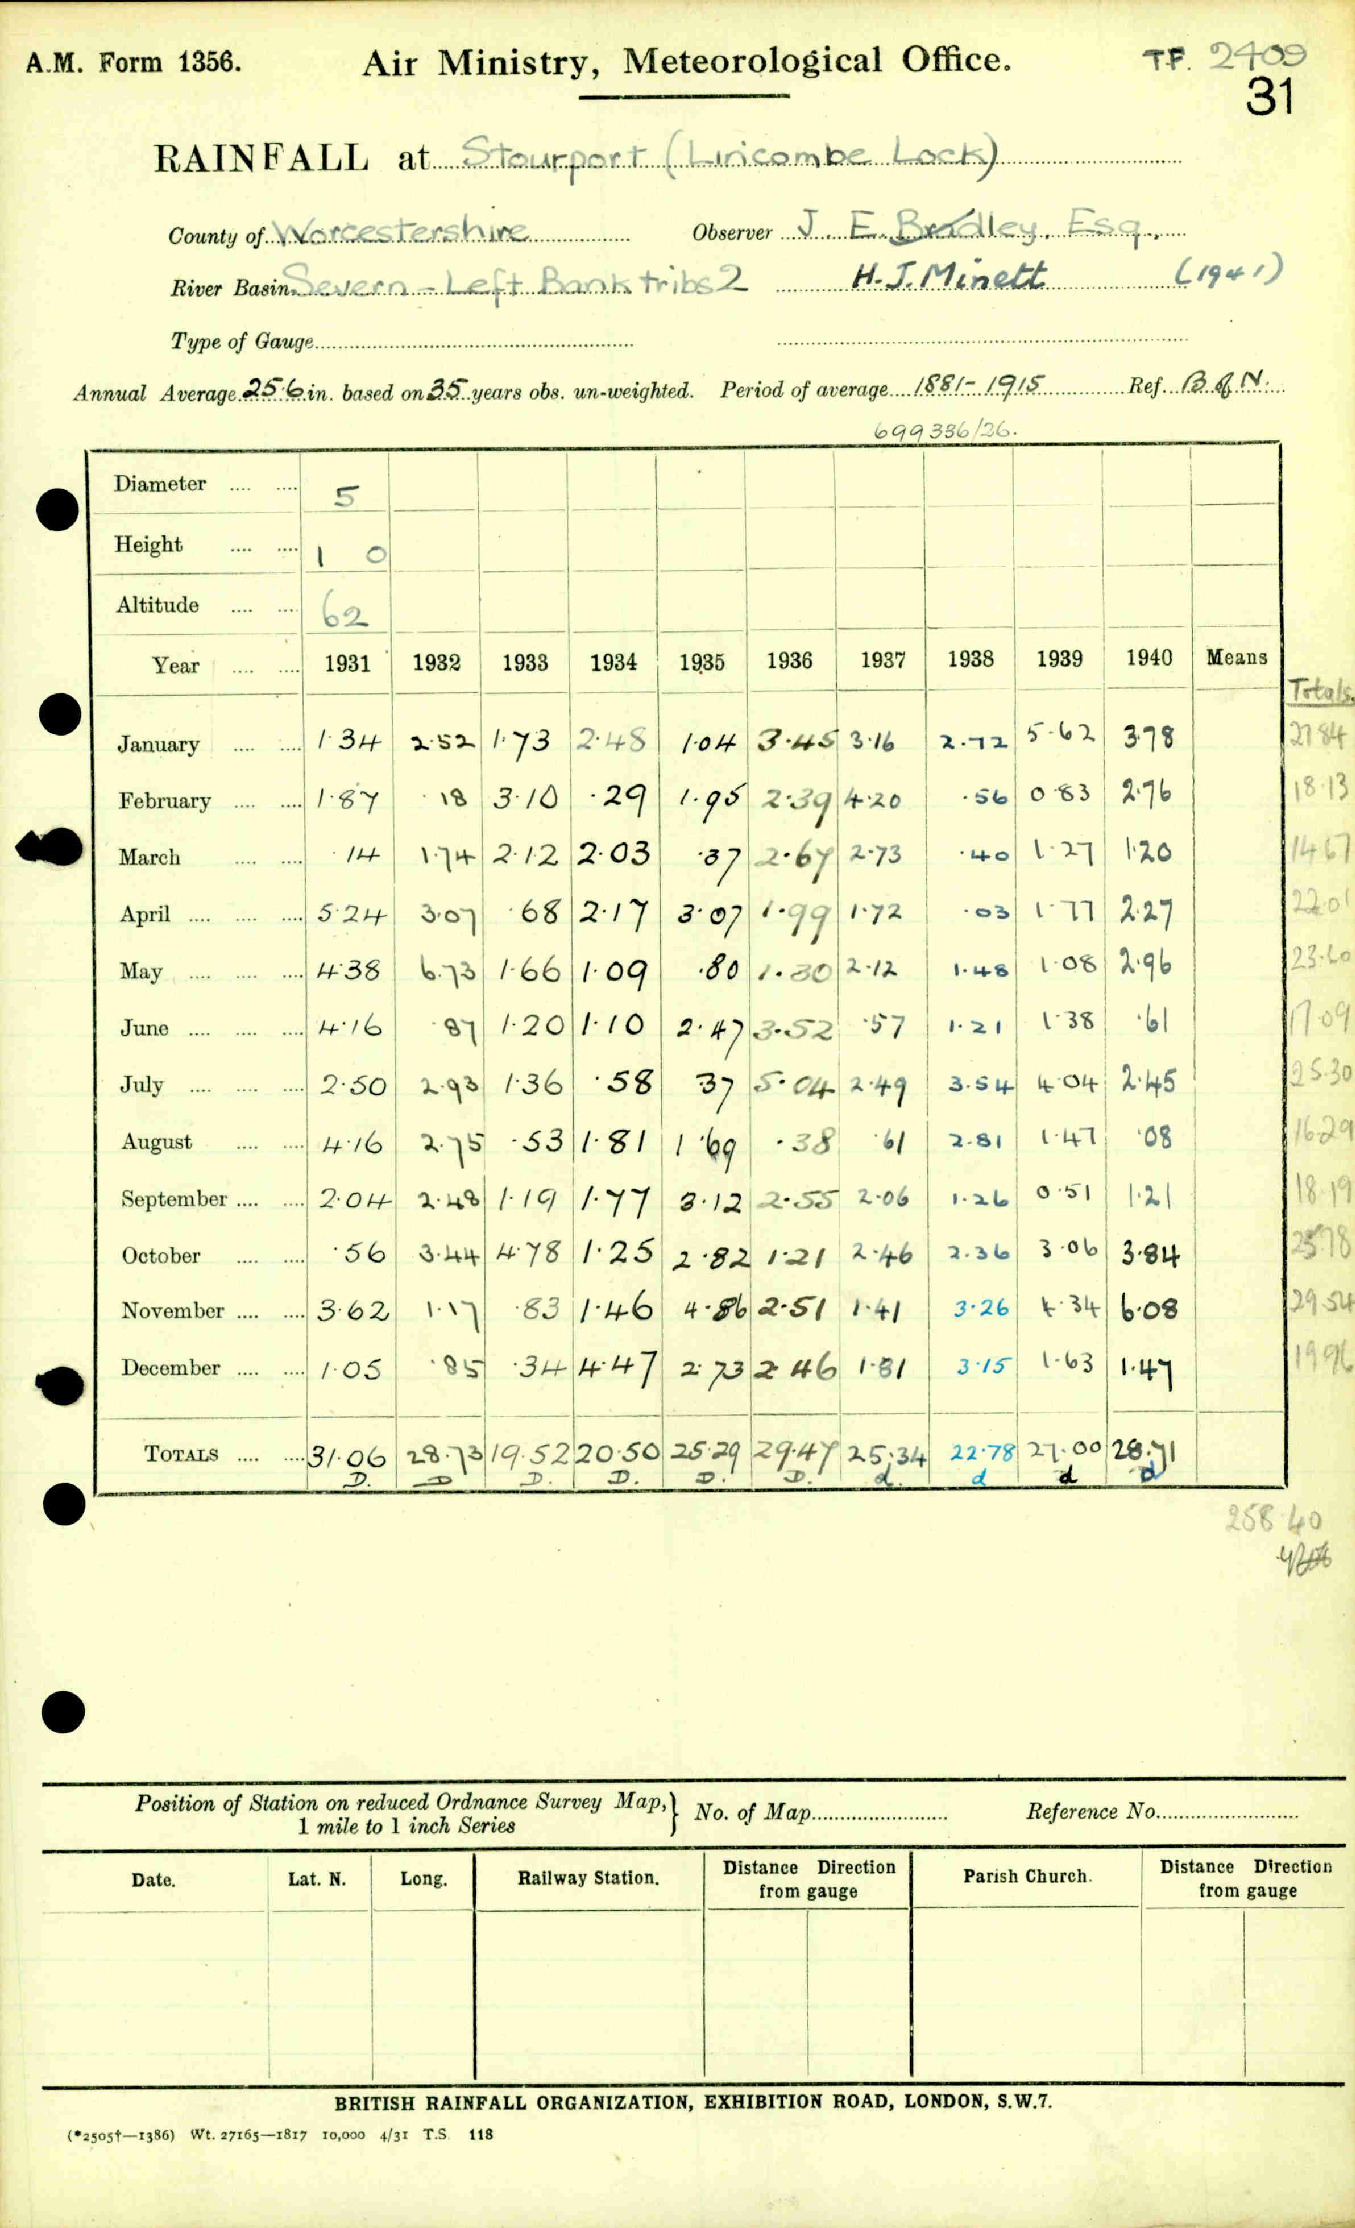 A.M. Form 1356. Air Ministry, Meteorological Office. T.F. 2409
31
RAINFALL at Stourport (Lincombe Lock)
County of Worcestershire Observer J. E. Bradley, Esq.,
River Basin Severn - Left Bank tribs 2 H. J. Minett (1941)
Type of Gauge
Annual Average 25.6 in. based on 35 years obs. un-weighted. Period of average 1881-1915 Ref. B of N.
699336/36.
Diameter .... .... 5
Height .... .... 1 0
Altitude .... .... 62
Year .... .... 1931 1932 1933 1934 1935 1936 1937 1938 1939 1940 Means
Totals.
January .... .... 1.34 2.52 1.73 2.48 1.04 3.45 3.16 2.72 5.62 3.78 27.84
February .... .... 1.87 .18 3.10 .29 1.95 2.39 4.20 .56 0.83 2.76 18.13
March .... .... .14 1.74 2.12 2.03 .37 2.67 2.73 .40 1.27 1.20 14.67
April .... .... .... 5.24 3.07 .68 2.17 3.07 1.99 1.72 .03 1.77 2.27 22.01
May .... .... .... 4.38 6.73 1.66 1.09 .80 1.30 2.12 1.48 1.08 2.96 23.60
June .... .... .... 4.16 .87 1.20 1.10 2.47 3.52 .57 1.21 1.38 .61 17.09
July .... .... .... 2.50 2.93 1.36 .58 .37 5.04 2.49 3.54 4.04 2.45 25.30
August .... .... 4.16 2.75 .53 1.81 1.69 .38 .61 2.81 1.47 .08 16.29
September .... .... 2.04 2.48 1.19 1.77 3.12 2.55 2.06 1.26 0.51 1.21 18.19
October .... .... .56 3.44 4.78 1.25 2.82 1.21 2.46 2.36 3.06 3.84 25.78
November .... .... 3.62 1.17 .83 1.46 4.86 2.51 1.41 3.26 4.34 6.08 29.54
December .... .... 1.05 .85 .34 4.47 2.73 2.46 1.81 3.15 1.63 1.47 19.96
TOTALS .... .... 31.06 28.73 19.52 20.50 25.29 29.47 25.34 22.78 27.00 28.71
D. D D. D. D. D. d. d d d
258.40
Position of Station on reduced Ordnance Survey Map, } No. of Map Reference No.
1 mile to 1 inch Series
Date. Lat. N. Long. Railway Station. Distance Direction Parish Church. Distance Direction
from gauge from gauge
BRITISH RAINFALL ORGANIZATION, EXHIBITION ROAD, LONDON, S.W.7.
(*2505†—1386) Wt. 27165—1817 10,000 4/31 T.S. 118